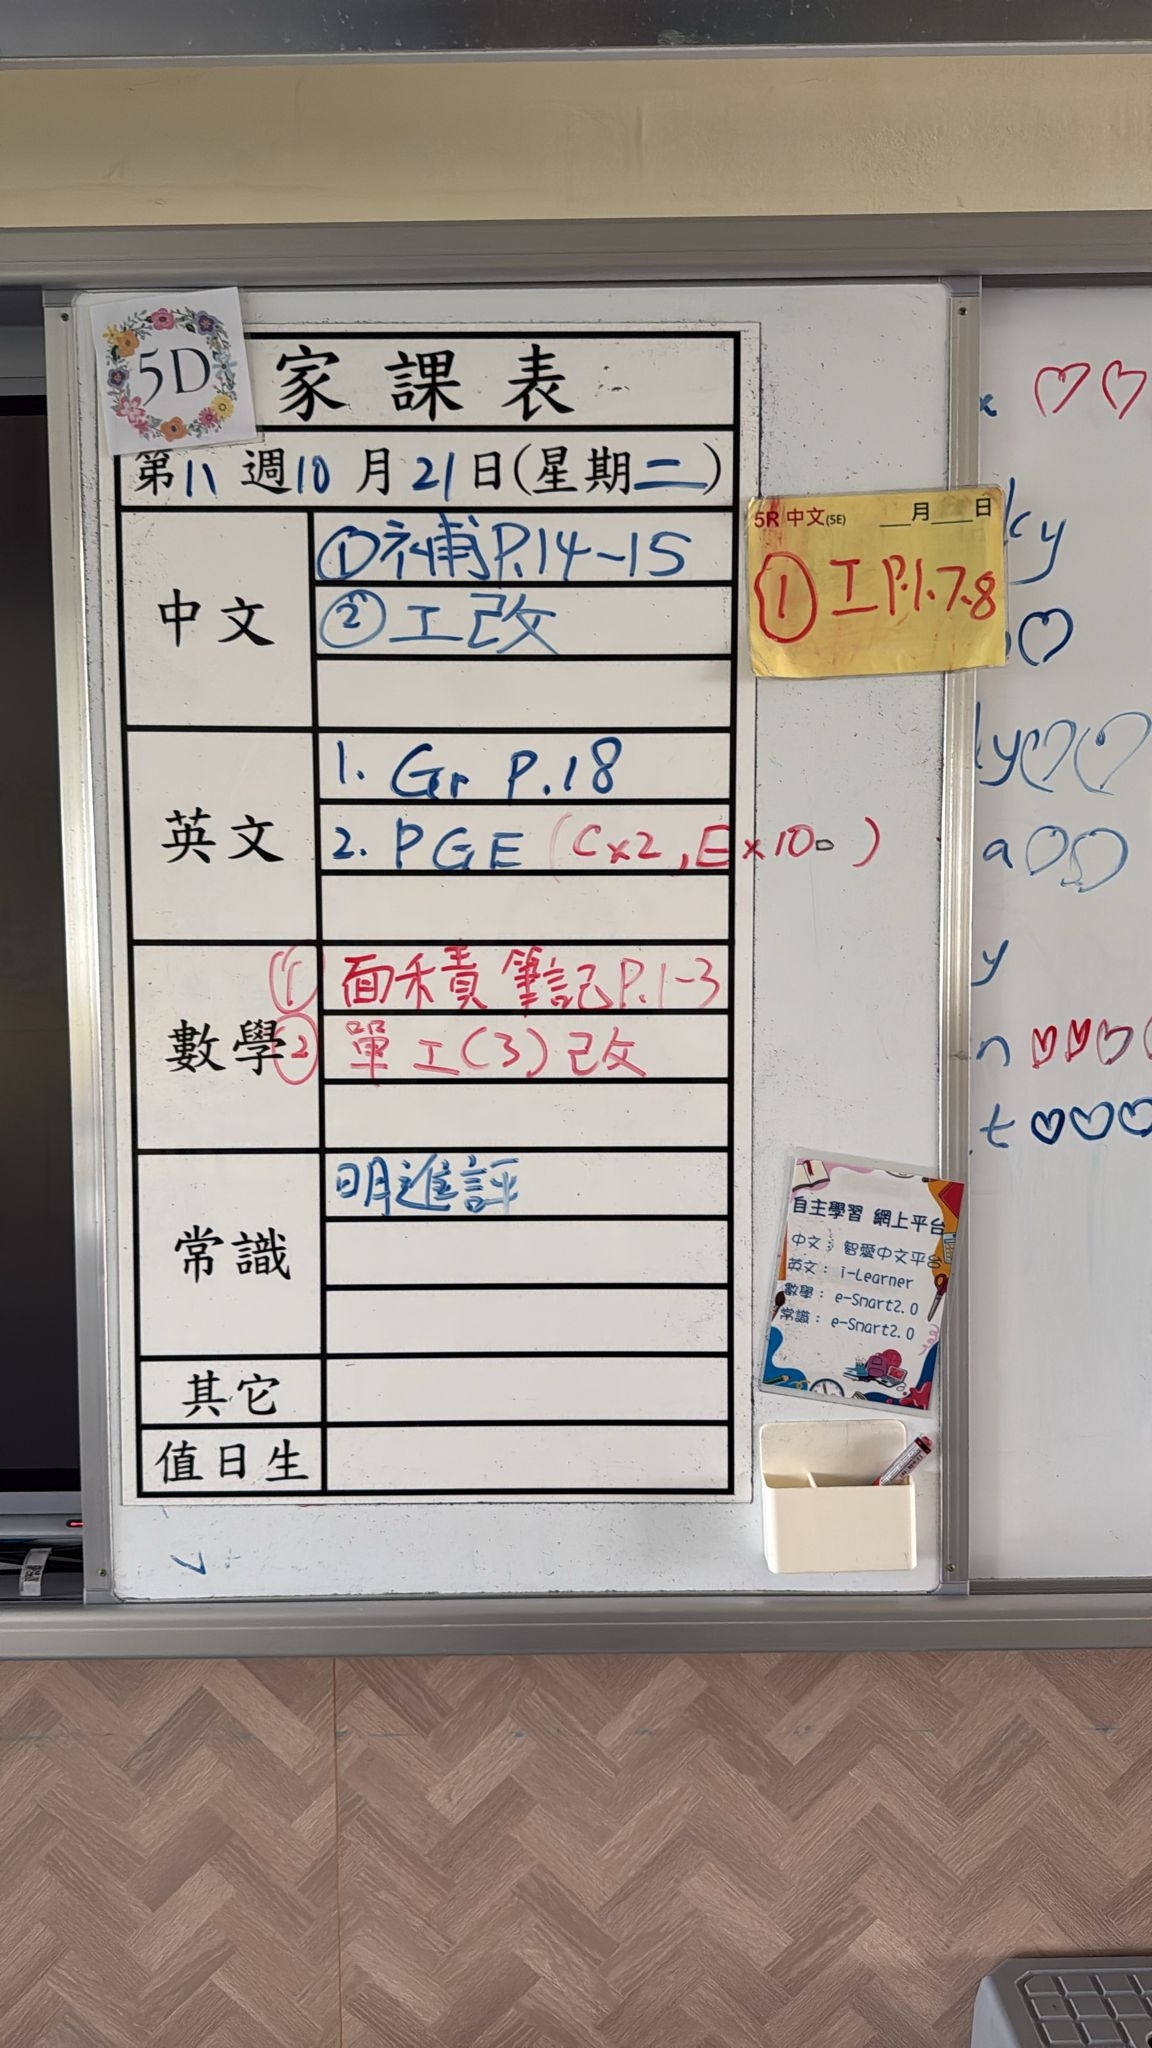 5D
家課表
第11週10月21日(星期二)
中文
①補P.14-15
②工改
5R中文(5E) ___月___日
① 工P.1.7.8
英文
1. Gr P.18
2. PGE (C×2, E×10。)
數學
① 面積筆記P.1-3
② 單工(3)改
常識
明進評
其它
值日生
自主學習 網上平台
中文：智愛中文平台
英文：i-Learner
數學：e-Smart2.0
常識：e-Smart2.0
ky
ly
a
y
n
t